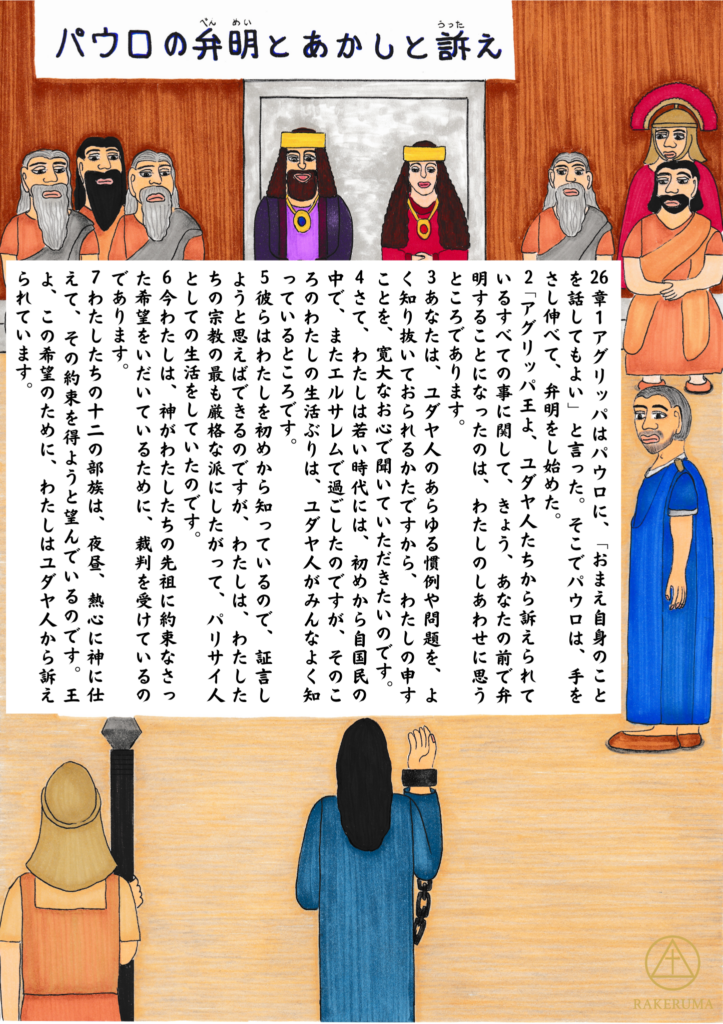 パウロの弁明とあかしと訴え
26章1アグリッパはパウロに、「おまえ自身のこと
を話してもよい」と言った。そこでパウロは、手を
さし伸べて、弁明をし始めた。
2「アグリッパ王よ、ユダヤ人たちから訴えられて
いるすべての事に関して、きょう、あなたの前で弁
明することになったのは、わたしのしあわせに思う
ところであります。
3あなたは、ユダヤ人のあらゆる慣例や問題を、よ
く知り抜いておられるかたですから、わたしの申す
ことを、寛大なお心で聞いていただきたいのです。
4さて、わたしは若い時代には、初めから自国民の
中で、またエルサレムで過ごしたのですが、そのこ
ろのわたしの生活ぶりは、ユダヤ人がみんなよく知
っているところです。
5彼らはわたしを初めから知っているので、証言し
ようと思えばできるのですが、わたしは、わたした
ちの宗教の最も厳格な派にしたがって、パリサイ人
としての生活をしていたのです。
6今わたしは、神がわたしたちの先祖に約束なさっ
た希望をいだいているために、裁判を受けているの
であります。
7わたしたちの十二の部族は、夜昼、熱心に神に仕
えて、その約束を得ようと望んでいるのです。王
よ、この希望のために、わたしはユダヤ人から訴え
られています。
RAKERUMA